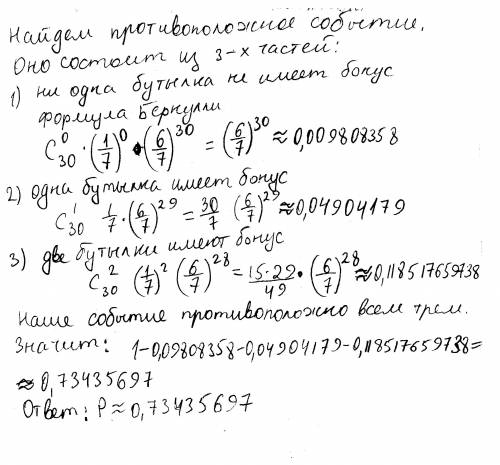 Найдем противоположное событие.
Оно состоит из 3-х частей:
1) ни одна бутылка не имеет бонус
формула Бернулли
C₃₀⁰ · (1/7)⁰ · (6/7)³⁰ = (6/7)³⁰ ≈ 0,009808358
2) одна бутылка имеет бонус
C₃₀¹ 1/7 · (6/7)²⁹ = 30/7 (6/7)²⁹ ≈ 0,04904179
3) две бутылки имеют бонус
C₃₀² (1/7)² (6/7)²⁸ = 15·29/49 · (6/7)²⁸ ≈ 0,118517659738
Наше событие противоположно всем трем.
Значит: 1-0,09808358-0,04904179-0,118517659738=
≈ 0,73435697
Ответ: P ≈ 0,73435697